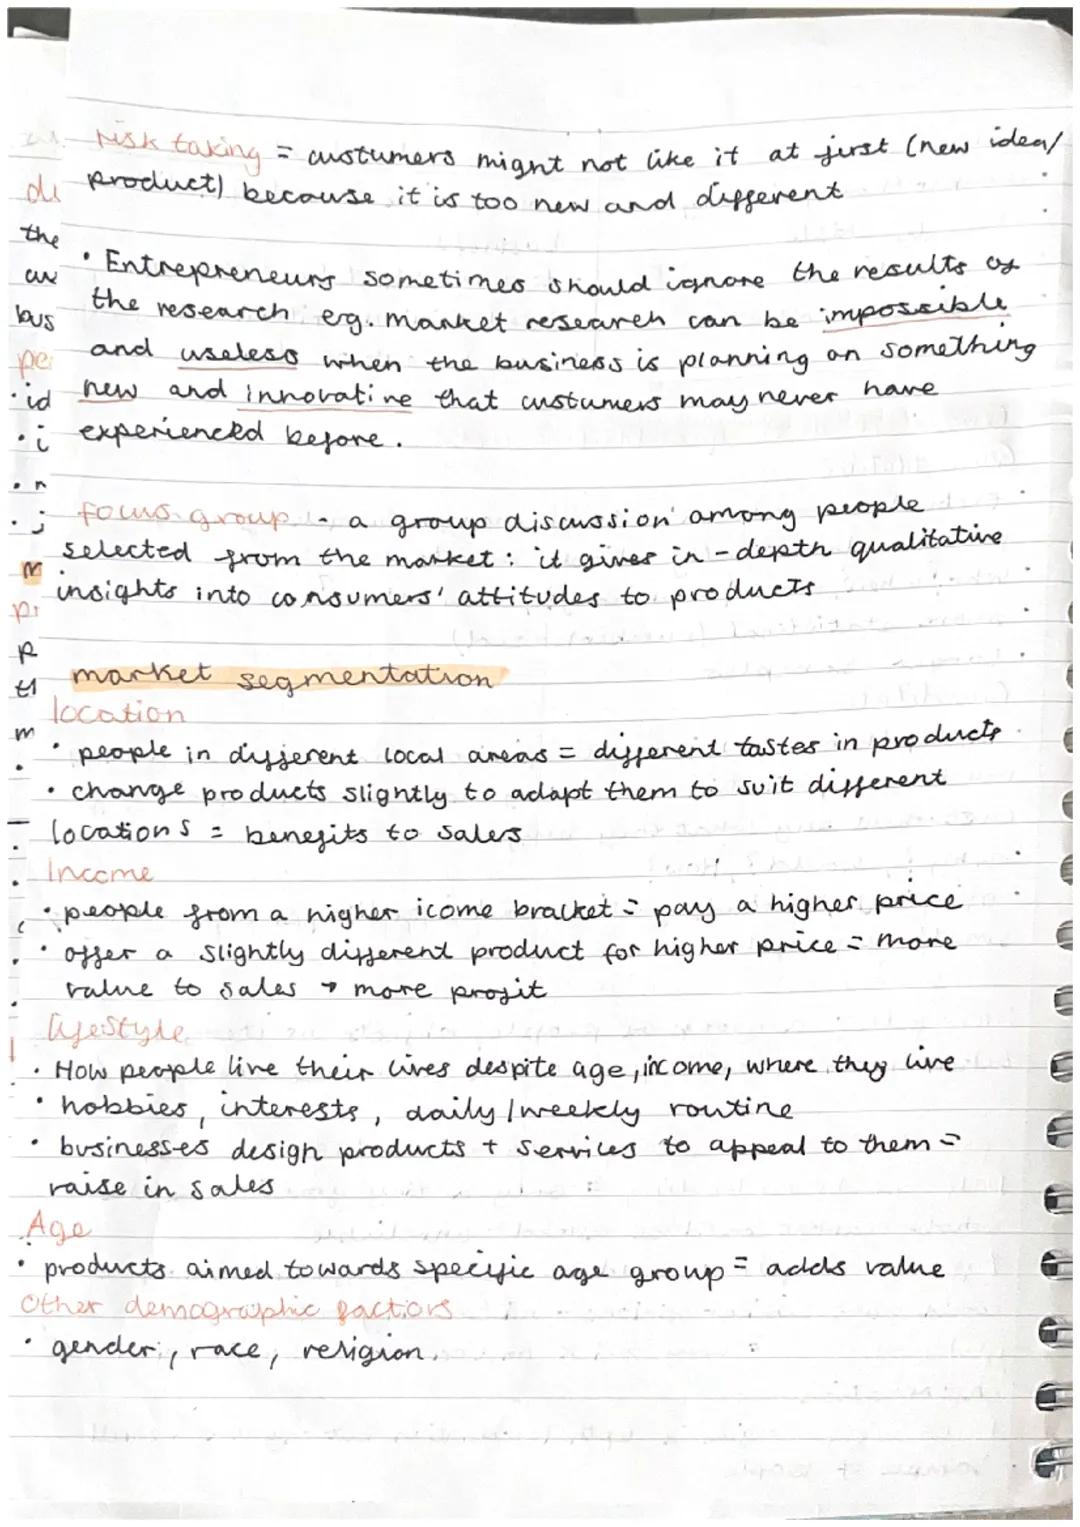 risk taking = custumers might not like it at first (new idea/
product) because it is too new and different
• Entrepreneurs sometimes should ignore the results of
the research eg. market research can be impossible
and useless when the business is planning on something
new and innovative that custumers may never have
experienced before.
focus group - a group discussion among people
selected from the market: it gives in-depth qualitative
insights into consumers' attitudes to products
market segmentation
location
• people in different local areas = different tastes in products
• change products slightly to adapt them to suit different
locations = benefits to sales
Income
• people from a higher icome bracket = pay a higher price
• offer a slightly different product for higher price = more
value to sales → more profit
lifestyle
• How people live their lives despite age, income, where they live
• hobbies, interests, daily/weekly routine
• businesses design products + services to appeal to them =
raise in sales
Age
• products aimed towards specific age group = adds value
Other demographic factors
• gender, race, religion.
the
bus